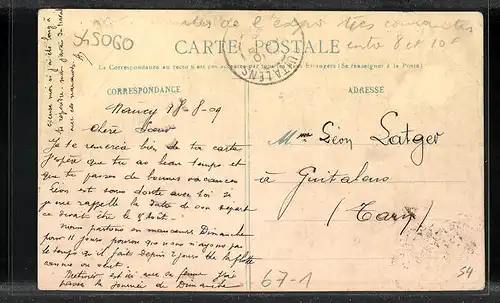 45060
CARTE POSTALE
La Correspondance au recto n'est pas acceptée par tous les Pays Etrangers (Se renseigner à la Poste)
CORRESPONDANCE
ADRESSE
Nancy 18-8-09
Chère Soeur
Je te remercie très de ta carte
J'espère que tu as beau temps et
que tu passes de bonnes vacances
Léon est sans doute avec toi si
je me rappelle la date de son départ
ce devait être le 8 Août.
Nous partons en manoeuvres Dimanche
pour 11 jours pourvu que nous n'ayons pas
le temps qu'il fait depuis 2 jours
est ici avec sa femme j'ai
passé la journée de Dimanche
Mme Léon Latger
à Guitalens
(Tarn)
GUITALENS
67-1
54